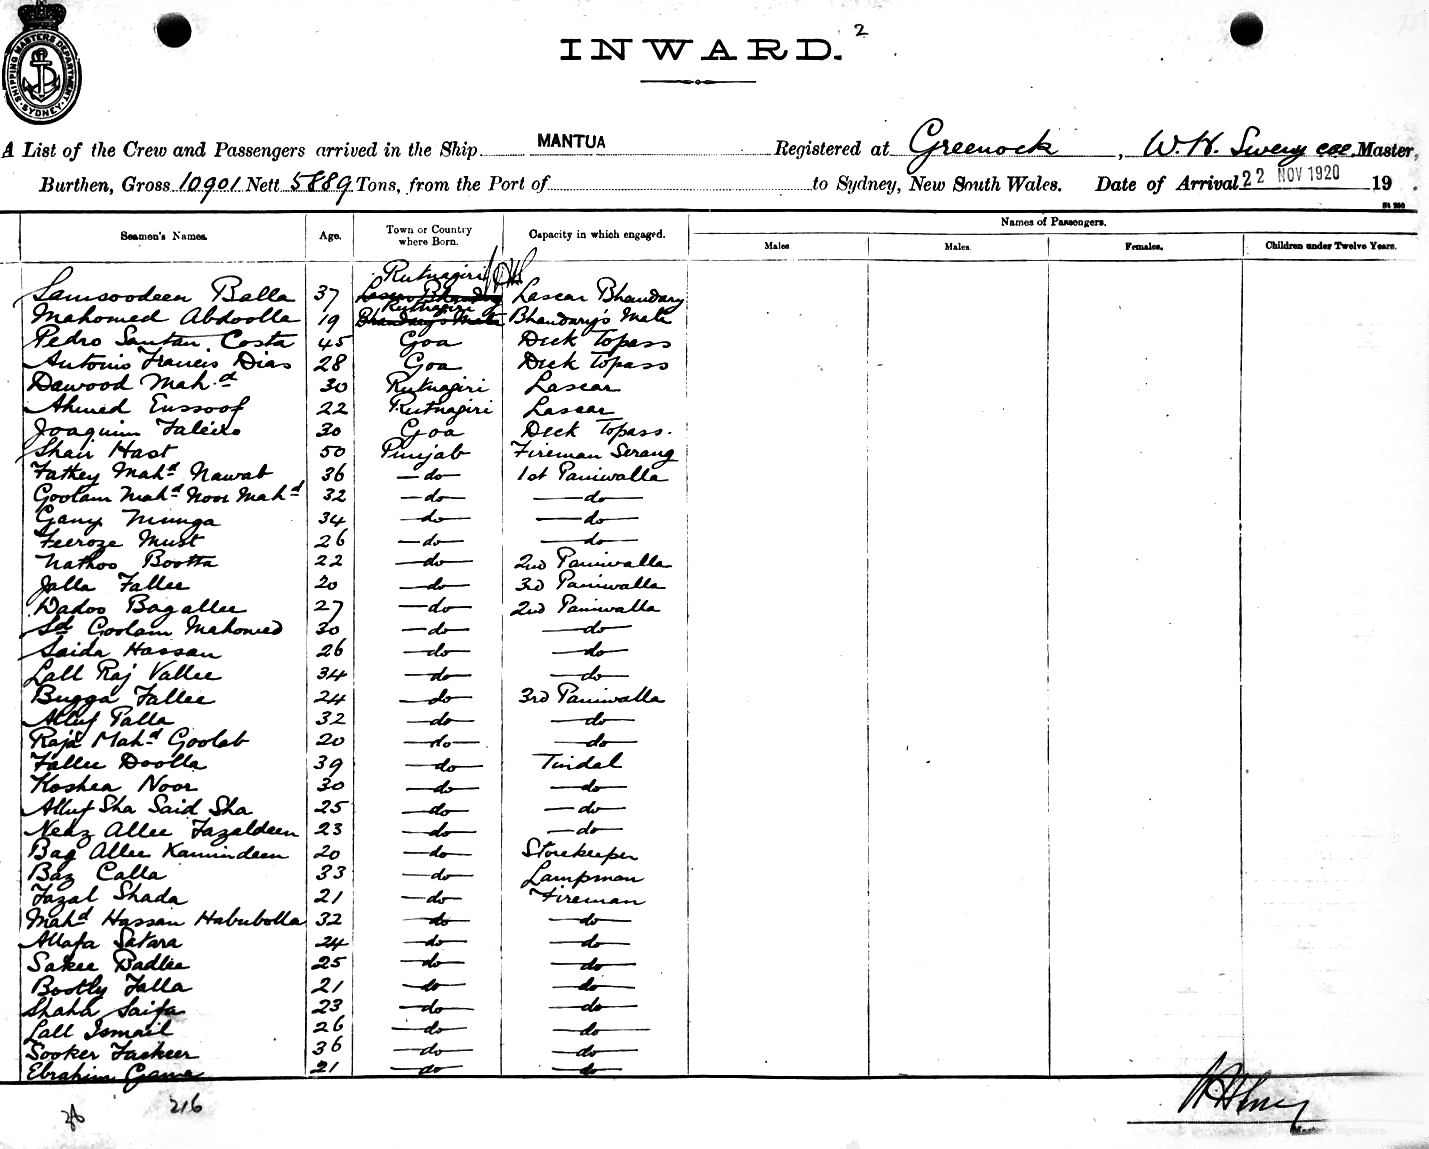 SHIPPING MASTERS DEPARTMENT
SYDNEY
INWARD. 2
A List of the Crew and Passengers arrived in the Ship MANTUA Registered at Greenock, W.H. Sweny Master,
Burthen, Gross 10901 Nett 5889 Tons, from the Port of to Sydney, New South Wales. Date of Arrival 22 NOV 1920 19 .
Names of Passengers.
Seamen's Names. Age. Town or Country where Born. Capacity in which engaged. Males. Males. Females. Children under Twelve Years.
Samsoodeen Balla 37 Rutnagiri Lascar Bhandary Lascar Bhandary
Mahomed Abdoolla 19 Rutnagiri Bhandary's Mate Bhandary's Mate
Pedro Santan Costa 45 Goa Deck Topass
Antonio Francis Dias 28 Goa Deck Topass
Dawood Mahd 30 Rutnagiri Lascar
Ahmed Eussoof 22 Rutnagiri Lascar
Joaquim Faleiro 30 Goa Deck Topass.
Shair Hast 50 Punjab Fireman Serang
Fathey Mahd Nawab 36 -do- 1st Paniwalla
Goolam Mahd Noor Mahd 32 -do- -do-
Gany Munga 34 -do- -do-
Feeroze Must 26 -do- -do-
Nathoo Bootta 22 -do- 2nd Paniwalla
Jalla Fallee 20 -do- 3rd Paniwalla
Dadoo Bagallee 27 -do- 2nd Paniwalla
Sd Goolam Mahomed 30 -do- -do-
Saida Hassan 26 -do- -do-
Lall Raj Vallee 34 -do- -do-
Bugga Fallee 24 -do- 3rd Paniwalla
Alluf Palla 32 -do- -do-
Raja Mahd Goolab 20 -do- -do-
Fallee Doolla 39 -do- Tindal
Koshea Noor 30 -do- -do-
Alluf Sha Said Sha 25 -do- -do-
Neaz Allee Fazaldeen 23 -do- -do-
Bag Allee Kamindeen 20 -do- Storekeeper
Baz Calla 33 -do- Lampman
Fazal Shada 21 -do- Fireman
Mahd Hassan Habubolla 32 -do- -do-
Allafa Satara 24 -do- -do-
Sakee Badlee 25 -do- -do-
Bootly Falla 21 -do- -do-
Shahh Saifa 23 -do- -do-
Lall Ismail 26 -do- -do-
Sooker Fackeer 36 -do- -do-
Ebrahim Gama 21 -do- -do-
216